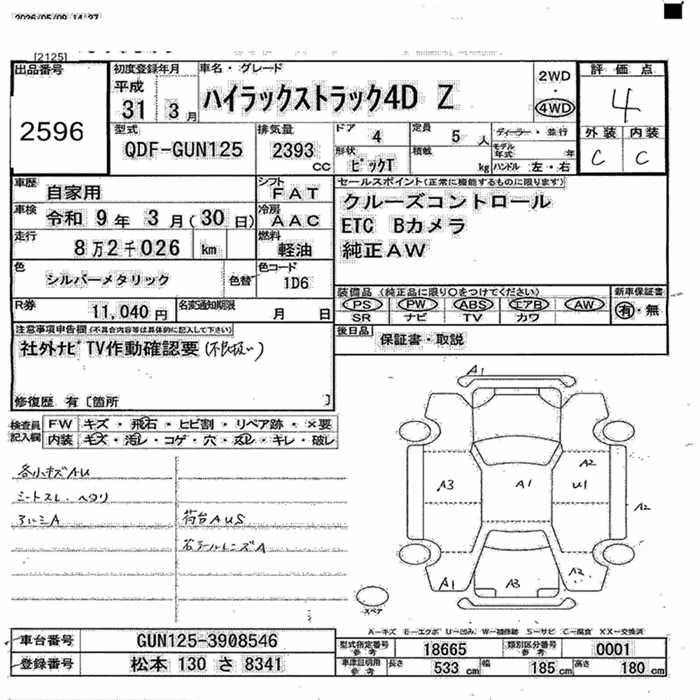 2026/05/09 14:27
[2125]
出品番号
2596
初度登録年月
平成
31 3月
車名・グレード
ハイラックストラック4D Z
2WD
・
4WD
評価点
4
外装 内装
C C
型式
QDF-GUN125
排気量
2393
CC
ドア 4
定員 5 人
ディーラー・並行
モデル年式 年
形状
ピックT
積載 kg
ハンドル 左・右
車歴
自家用
シフト
FAT
車検
令和 9年 3月(30日)
冷房
AAC
走行
8万2千026 km
燃料
軽油
色
シルバーメタリック
色替
色コード
1D6
R券
11,040円
名変通知期限
月 日
セールスポイント(正常に機能するものに限ります)
クルーズコントロール
ETC Bカメラ
純正AW
装備品 (純正品に限り○をつけてください)
PS PW ABS エアB AW
SR ナビ TV カワ
新車保証書
有・無
後日品
保証書・取説
注意事項申告欄(不具合内容等は具体的に記入して下さい)
社外ナビTV作動確認要(不良扱い)
修復歴 有〔箇所 〕
検査員
記入欄
FW キズ・飛石・ヒビ割・リペア跡・×要
内装 キズ・汚レ・コゲ・穴・凹レ・キレ・破レ
各小キズAU
シートスレ、ヘタリ
アルミA
荷台AUS
右テールレンズA
A1
A2
A3
A1
U1
A2
A1
A3
A2
スペア
A-キズ E-エクボ U-凹み W-補修跡 S-サビ C-腐食 XX-交換済
車台番号
GUN125-3908546
登録番号
松本 130 さ 8341
型式指定番号
参考
18665
類別区分番号
参考
0001
車庫証明用
参考
長さ 533 cm
幅 185 cm
高さ 180 cm